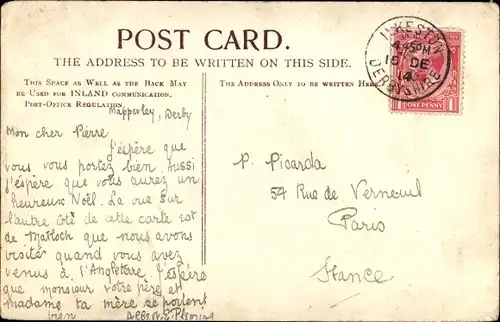 POST CARD.
THE ADDRESS TO BE WRITTEN ON THIS SIDE.
THIS SPACE AS WELL AS THE BACK MAY
BE USED FOR INLAND COMMUNICATION.
POST-OFFICE REGULATION.
THE ADDRESS ONLY TO BE WRITTEN HERE.
ILKESTON
4.45PM
15 DE
14
DERBYSHIRE
ONE PENNY 1
Mapperley, Derby
Mon cher Pierre
J'éspère que
vous vous portez bien, aussi
j'éspère que vous aurez un
heureux Noël. La vue sur
l'autre côté de cette carte est
de Matloch que nous avons
visités quand vous avez
venus à l'Angleterre. J'éspère
que monsieur votre père et
madame ta mère se portent
bien
P. Picarda
54 Rue de Verneuil
Paris
France